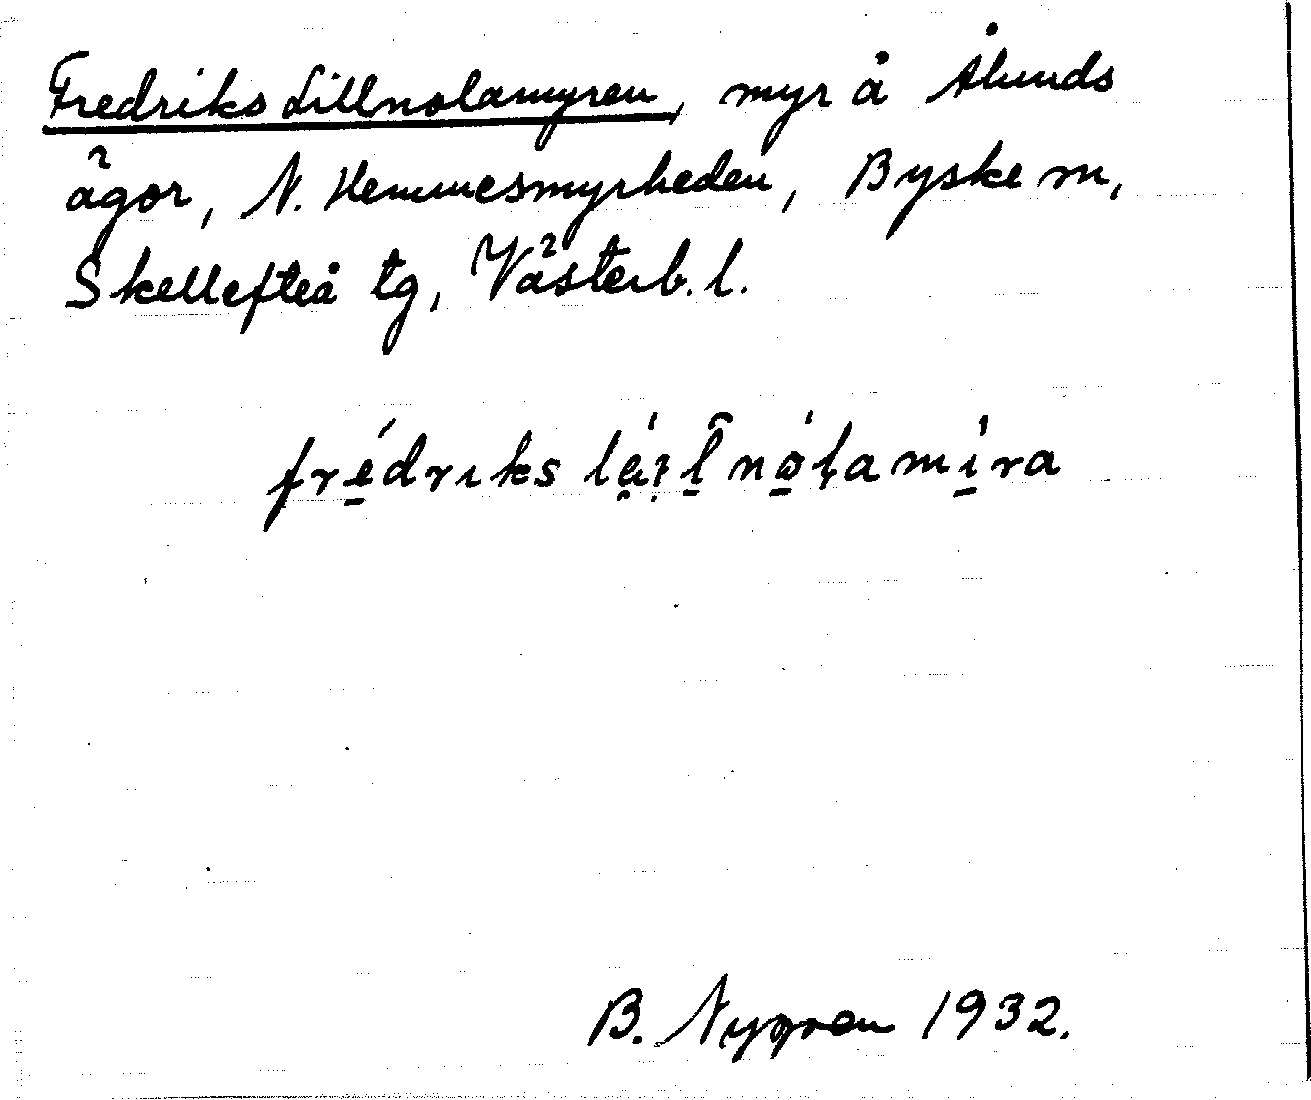 Fredriks Lillnolamyren, myr å Ålunds
ägor, N. Hemmesmyrheden, Byske m,
Skellefteå tg, Västerb. l.
frédriks
B. Nygren 1932.